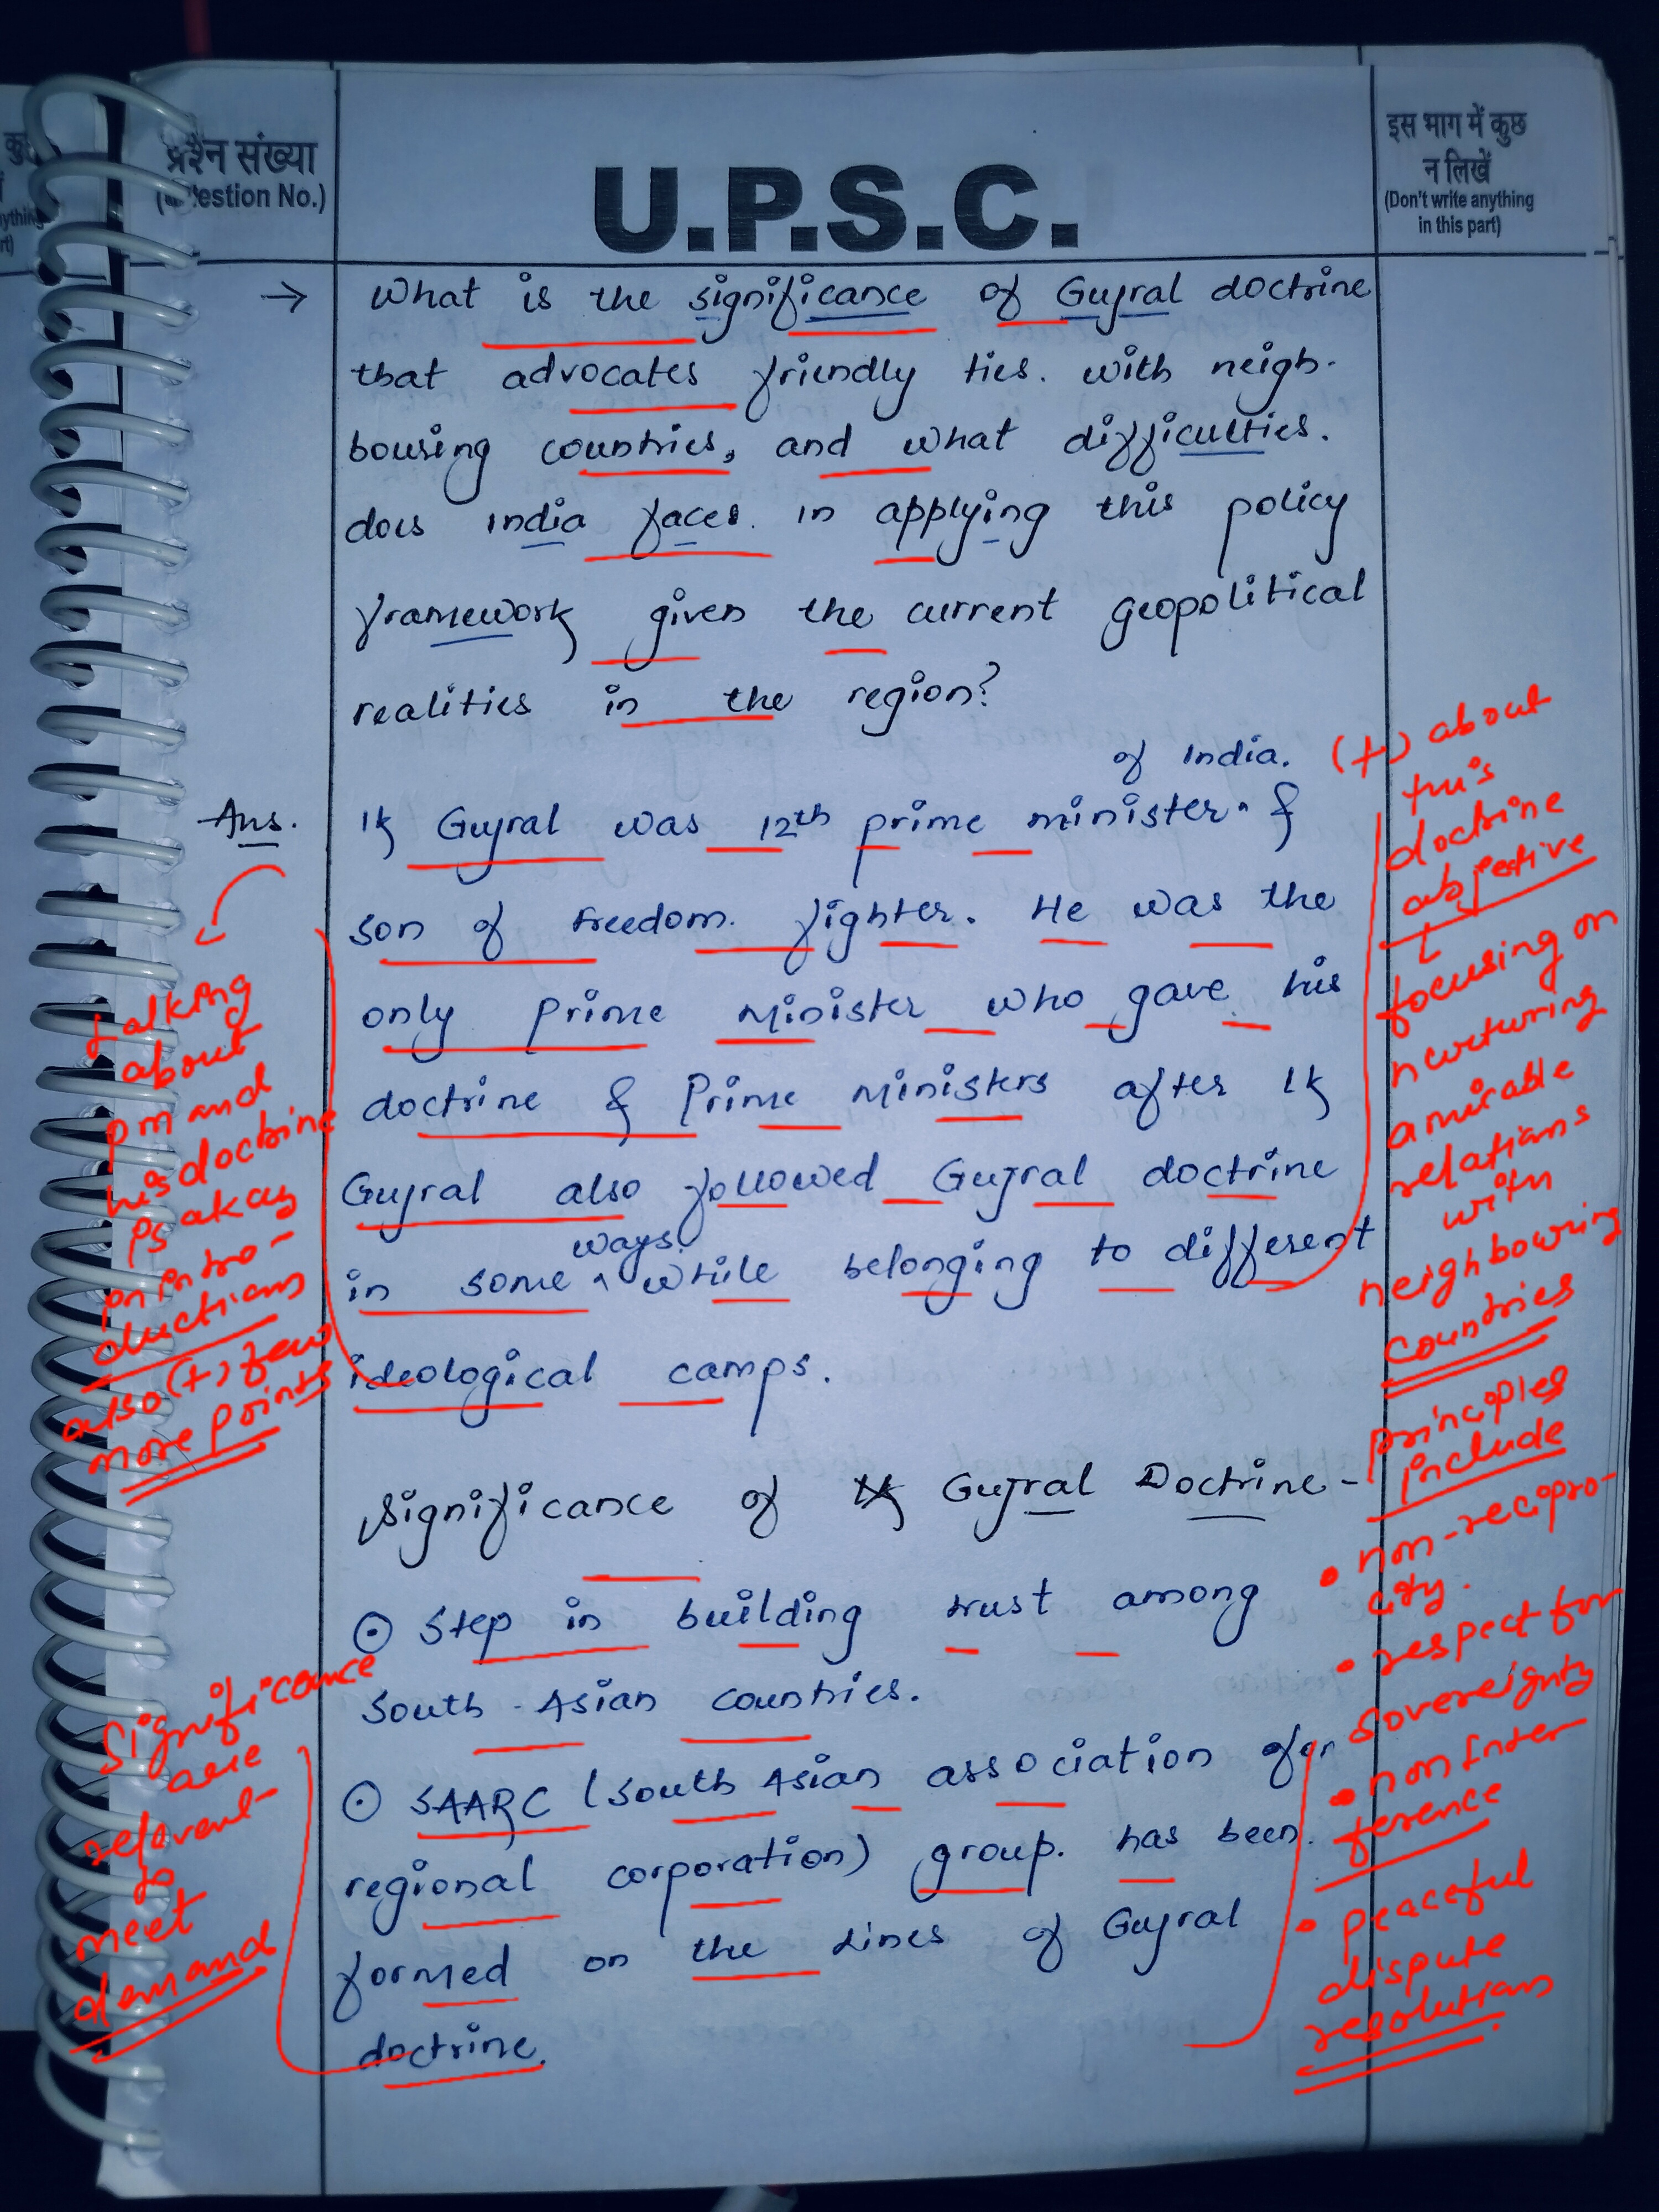 प्रश्न संख्या
(Question No.)
U.P.S.C.
इस भाग में कुछ
न लिखें
(Don't write anything
in this part)
→ What is the significance of Gujral doctrine
that advocates friendly ties. with neigh-
bousing countries, and what difficulties.
does india faces. in applying this policy
framework given the current geopolitical
realities in the region?
of India.
Ans. IK Gujral was 12th prime minister ^ &
son of freedom. fighter. He was the
only Prime Minister who gave his
doctrine & Prime Ministers after IK
Gujral also followed Gujral doctrine
ways.
in some ^ while belonging to different
ideological camps.
Significance of Gujral Doctrine-
⊙ Step in building trust among
South - Asian countries.
⊙ SAARC (South Asian association for
regional corporation) group. has been.
formed on the lines of Gujral
doctrine.
talking
about
pm and
his doctrine
is okay
in intro-
ductions
also (+) few
more points
significance
are
relevant
to
meet
demand
(+) about
this
doctrine
objective
focusing on
nurturing
amicable
relations
with
neighbouring
countries
principles
include
• non-recipro-
city.
• respect for
sovereignty
• non Inter
ference
• peaceful
dispute
resolutions